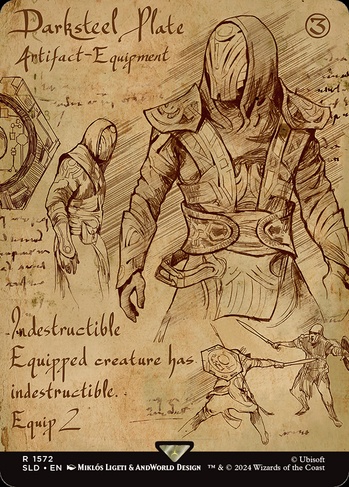 Darksteel Plate
3
Artifact-Equipment
Indestructible
Equipped creature has
indestructible.
Equip 2
R 1572
SLD • EN MIKLÓS LIGETI & ANDWORLD DESIGN
© Ubisoft
™ & © 2024 Wizards of the Coast